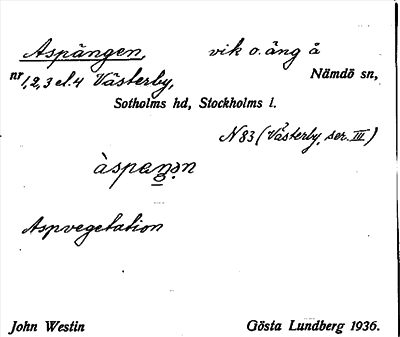 Aspängen, vik o. äng å
nr 1,2,3 el. 4 Västerby, Nämdö sn,
Sotholms hd, Stockholms l.
N 83 (Västerby, ser. III)
Aspvegetation
John Westin Gösta Lundberg 1936.